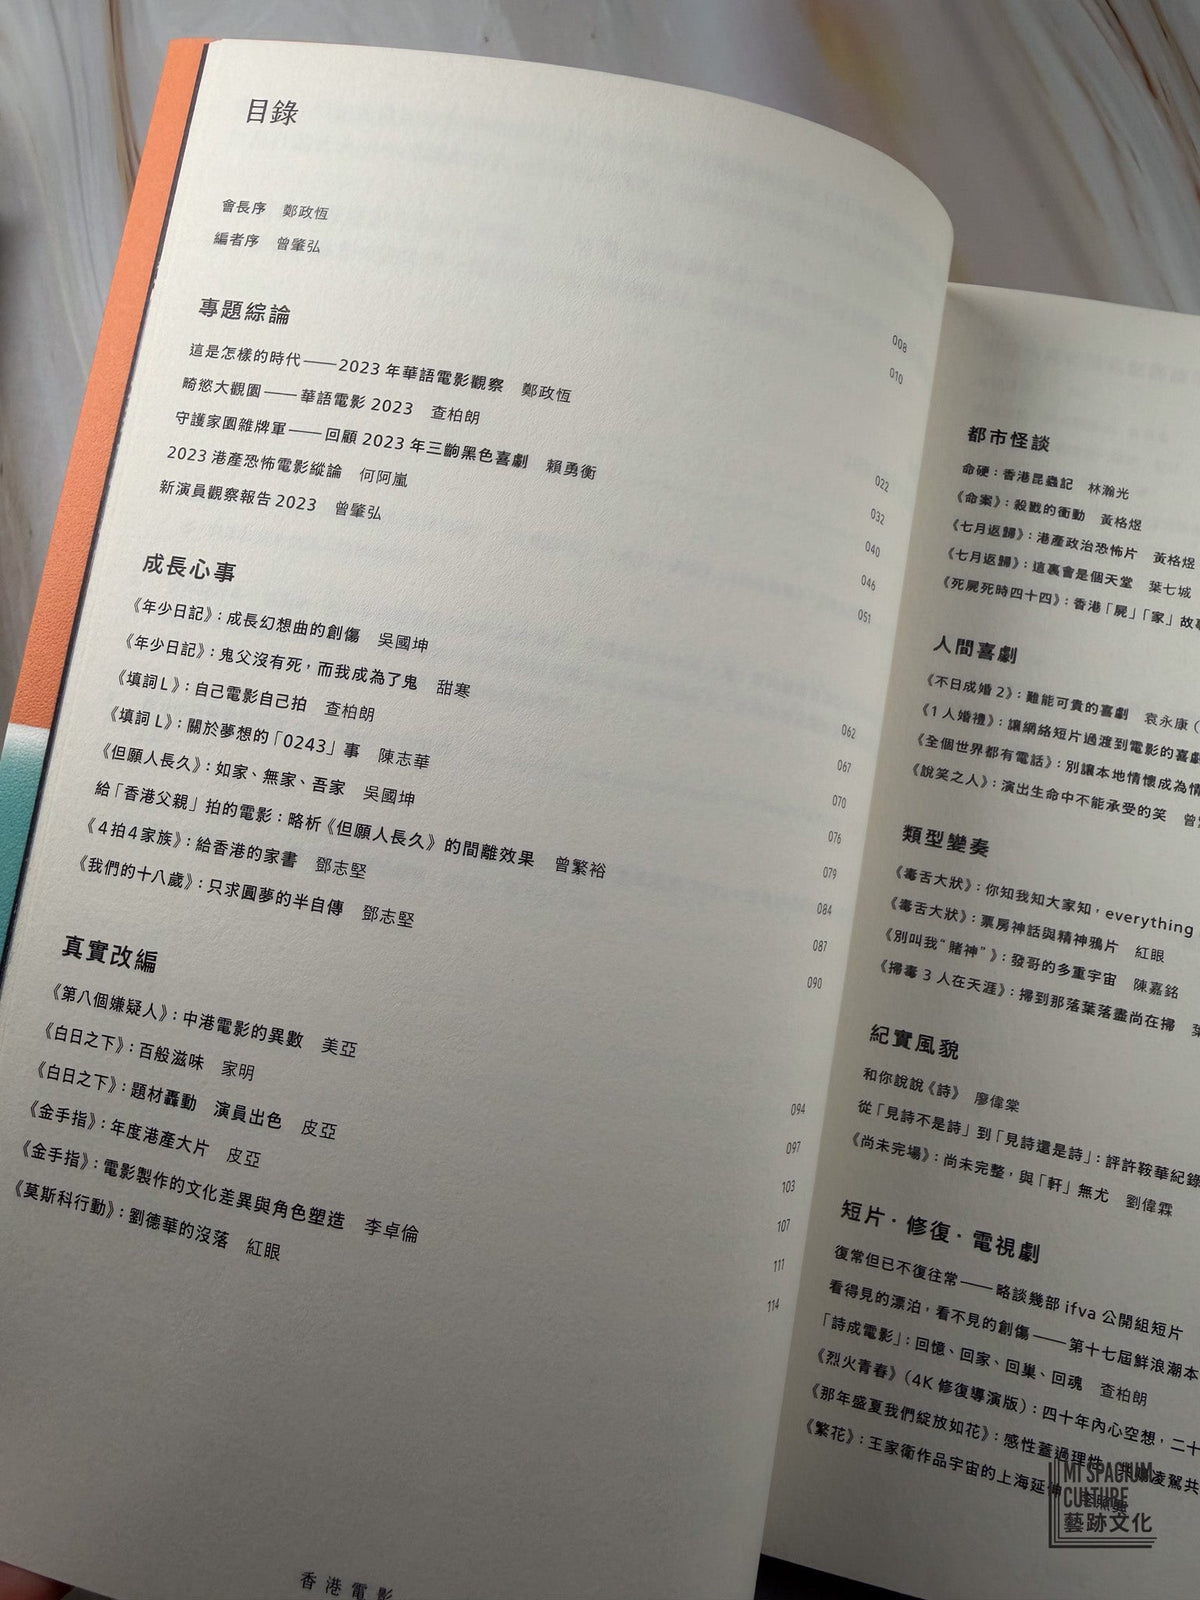 目錄
會長序 鄭政恆 008
編者序 曾肇弘 010
專題綜論
這是怎樣的時代——2023 年華語電影觀察 鄭政恆 022
畸慾大觀園——華語電影 2023 查柏朗 032
守護家園雜牌軍——回顧 2023 年三齣黑色喜劇 賴勇衡 040
2023 港產恐怖電影縱論 何阿嵐 046
新演員觀察報告 2023 曾肇弘 051
成長心事
《年少日記》：成長幻想曲的創傷 吳國坤 062
《年少日記》：鬼父沒有死，而我成為了鬼 甜寒 067
《填詞L》：自己電影自己拍 查柏朗 070
《填詞 L》：關於夢想的「0243」事 陳志華 076
《但願人長久》：如家、無家、吾家 吳國坤 079
給「香港父親」拍的電影：略析《但願人長久》的間離效果 曾繁裕 084
《4拍4家族》：給香港的家書 鄧志堅 087
《我們的十八歲》：只求圓夢的半自傳 鄧志堅 090
真實改編
《第八個嫌疑人》：中港電影的異數 美亞 094
《白日之下》：百般滋味 家明 097
《白日之下》：題材轟動 演員出色 皮亞 103
《金手指》：年度港產大片 皮亞 107
《金手指》：電影製作的文化差異與角色塑造 李卓倫 111
《莫斯科行動》：劉德華的沒落 紅眼 114
香港電影
都市怪談
命硬：香港昆蟲記 林瀚光
《命案》：殺戮的衝動 黃格煜
《七月返歸》：港產政治恐怖片 黃格煜
《七月返歸》：這裏會是個天堂 葉七城
《死屍死時四十四》：香港「屍」「家」故事
人間喜劇
《不日成婚 2》：難能可貴的喜劇 袁永康
《1 人婚禮》：讓網絡短片過渡到電影的喜劇
《全個世界都有電話》：別讓本地情懷成為情
《說笑之人》：演出生命中不能承受的笑 曾
類型變奏
《毒舌大狀》：你知我知大家知，everything
《毒舌大狀》：票房神話與精神鴉片 紅眼
《別叫我“賭神”》：發哥的多重宇宙 陳嘉銘
《掃毒 3 人在天涯》：掃到那落葉落盡尚在掃
紀實風貌
和你說說《詩》 廖偉棠
從「見詩不是詩」到「見詩還是詩」：評許鞍華紀錄
《尚未完場》：尚未完整，與「軒」無尤 劉偉霖
短片·修復·電視劇
復常但已不復往常——略談幾部 ifva 公開組短片
看得見的漂泊，看不見的創傷——第十七屆鮮浪潮本
「詩成電影」：回憶、回家、回巢、回魂 查柏朗
《烈火青春》（4K 修復導演版）：四十年內心空想，二十
《那年盛夏我們綻放如花》：感性蓋過理性，凌駕共
《繁花》：王家衛作品宇宙的上海延伸
MI SPACIUM
CULTURE
藝跡文化